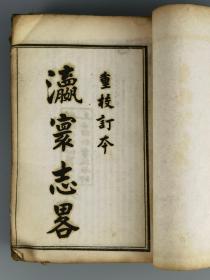 重校訂本
瀛寰志畧